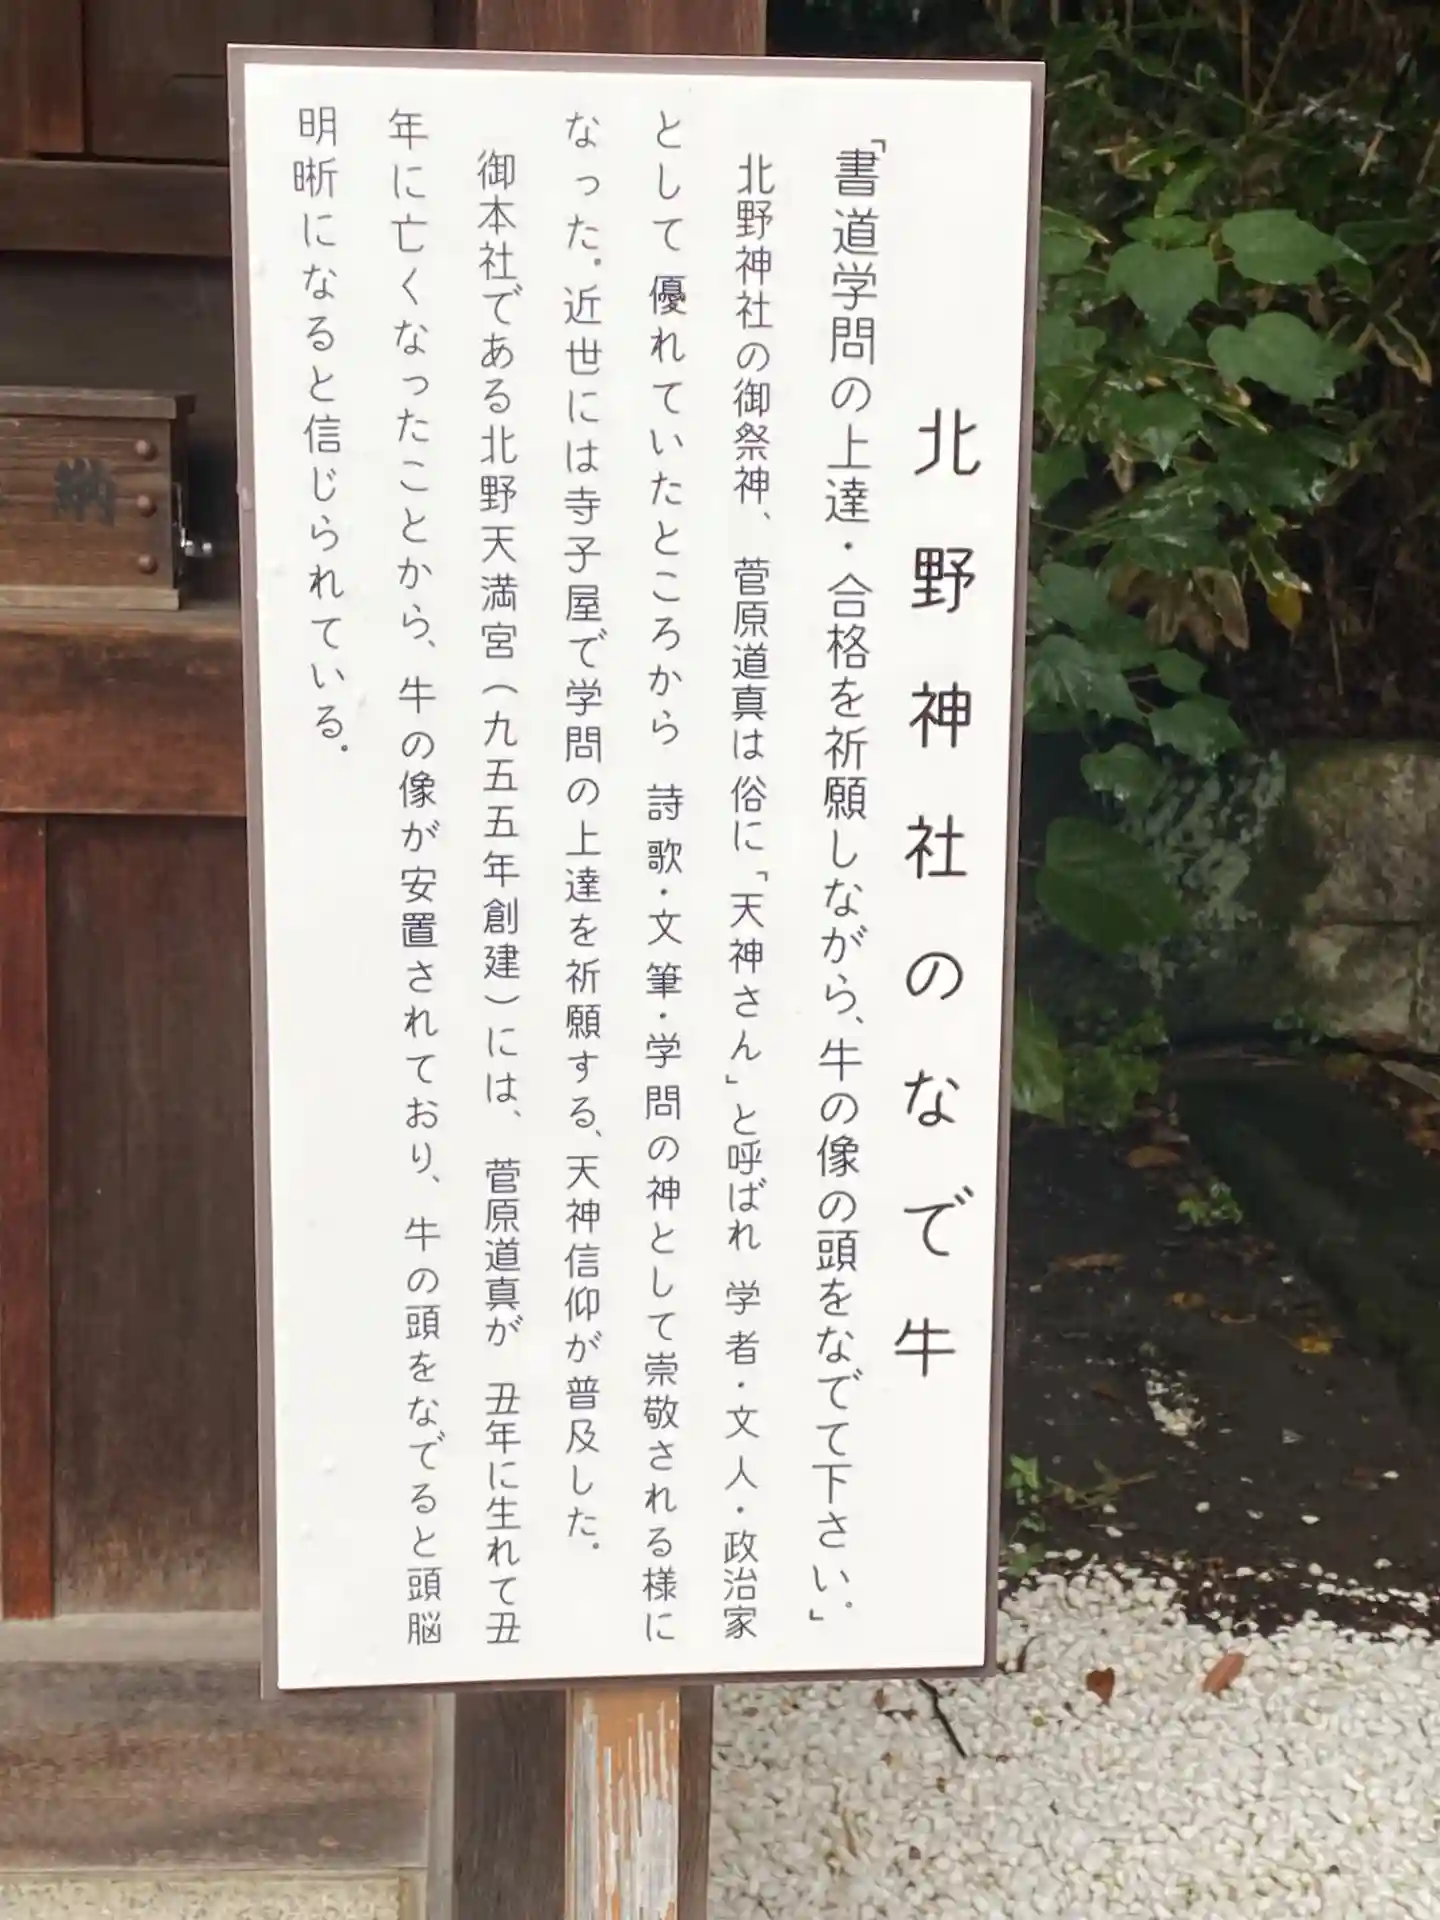 北野神社のなで牛
「書道学問の上達・合格を祈願しながら、牛の像の頭をなでて下さい。」
北野神社の御祭神、菅原道真は俗に「天神さん」と呼ばれ 学者・文人・政治家
として優れていたところから 詩歌・文筆・学問の神として崇敬される様に
なった。近世には寺子屋で学問の上達を祈願する、天神信仰が普及した。
御本社である北野天満宮（九五五年創建）には、菅原道真が 丑年に生れて丑
年に亡くなったことから、牛の像が安置されており、牛の頭をなでると頭脳
明晰になると信じられている。
納